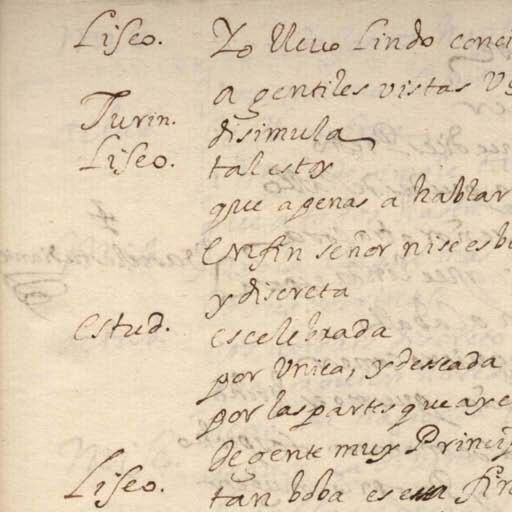 Liseo. Yo lleuo lindo conci
a gentiles vistas v
Turin. disimula
Liseo. tal estoy
que apenas a hablar
En fin señor nise es b
y discreta
estud. es celebrada
por vnica, y desseada
por las partes que ay e
de gente muy Princi
Liseo. tan boba es esa fin